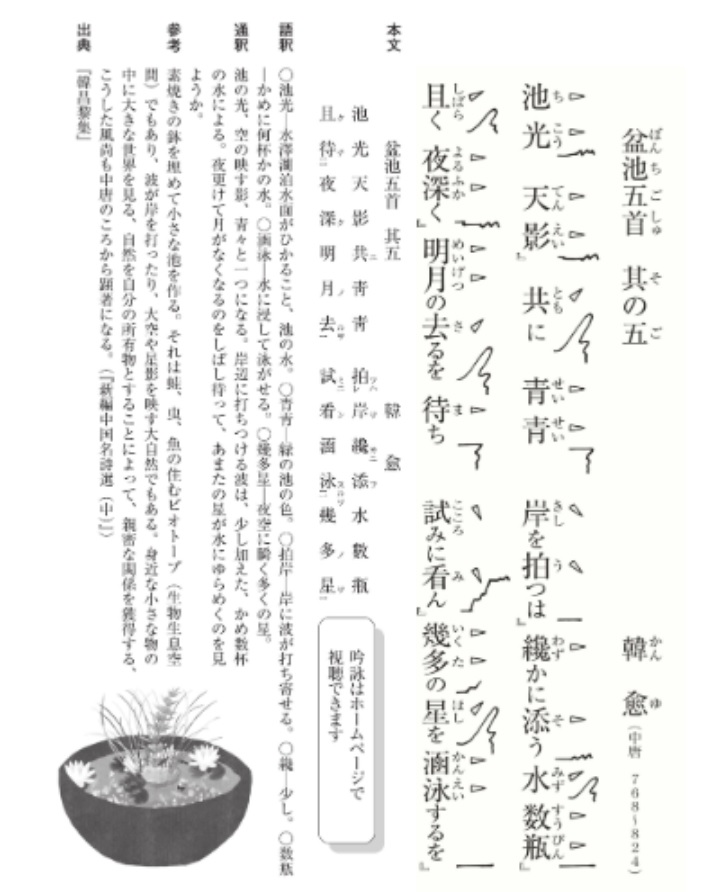 ばんちごしゅ そのご
盆池五首 其の五
かん ゆ
韓 愈(中唐 768~824)
ち こう てん えい とも せい せい
池光 天影 共に 青青
きし う わず そ みず すうびん
岸を拍つは 纔かに添う 水数瓶
しばら よるふか めいげつ さ ま
且く 夜深く 明月の去るを 待ち
こころ み いくた ほし かんえい
試みに看ん 幾多の星を 涵泳するを
本文
盆池五首 其五
韓 愈
池光天影共青青 拍岸纔添水數瓶
且待夜深明月去 試看涵泳幾多星
吟詠はホームページで
視聴できます
語釈 ○池光―水澤湖泊水面がひかること、池の水。○青青―緑の池の色。○拍岸―岸に波が打ち寄せる。○纔―少し。○数瓶
―かめに何杯かの水。○涵泳―水に浸して泳がせる。○幾多星―夜空に瞬く多くの星。
通釈 池の光、空の映す影、青々と一つになる。岸辺に打ちつける波は、少し加えた、かめ数杯
の水による。夜更けて月がなくなるのをしばし待って、あまたの星が水にゆらめくのを見
ようか。
参考 素焼きの鉢を埋めて小さな池を作る。それは蛙、虫、魚の住むビオトープ(生物生息空
間)でもあり、波が岸を打ったり、大空や星影を映す大自然でもある。身近な小さな物の
中に大きな世界を見る、自然を自分の所有物とすることによって、親密な関係を獲得する、
こうした風尚も中唐のころから顕著になる。(『新編中国名詩選(中)』)
出典 『韓昌黎集』